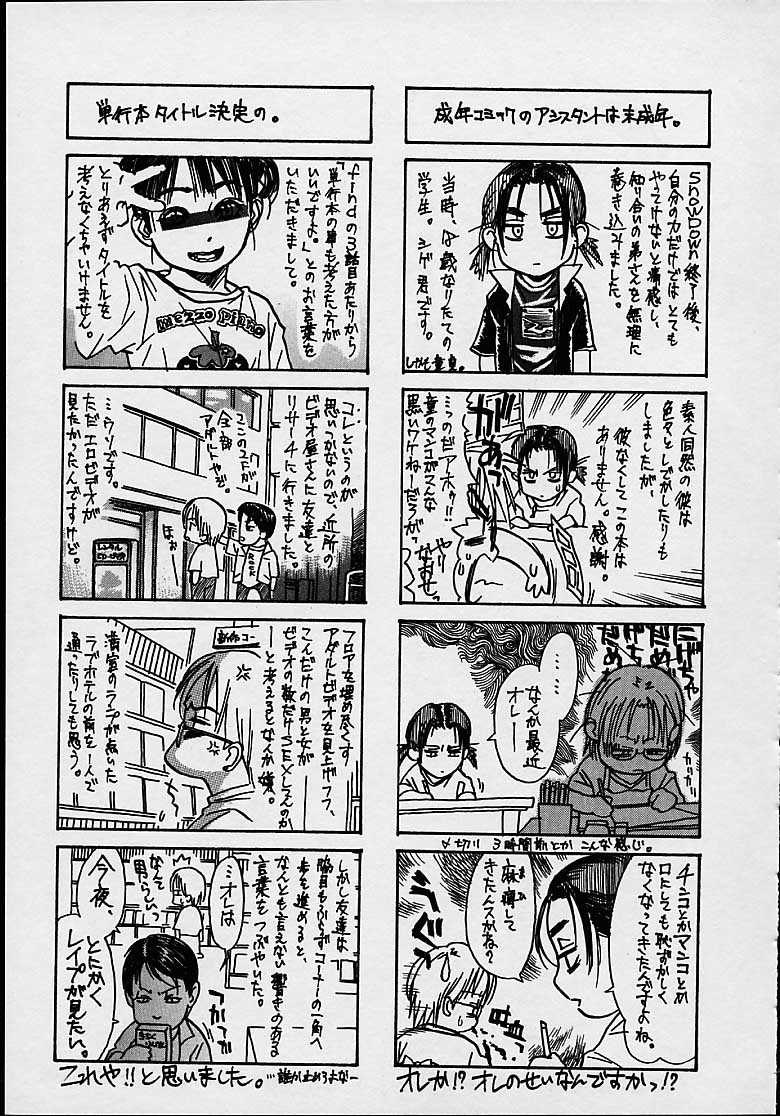 成年コミックのアシスタントは未成年。
SNOWDOWN終了後、
自分の力だけではとても
やってけないと痛感し、
知り合いの弟さんを無理に
巻き込みました。
当時、18歳なりたての
学生。シゲ君です。
しかも童貞。
素人同然の彼は
色々としでかしたりも
しましたが、
彼なくしてこの本は
ありません。感謝。
やり
なおせっ
………
なんか最近
オレ――
〆切り 3時間前とか こんな感じ。
チンコとかマンコとか
口にしても恥ずかしく
なくなってきたんですよね。
麻痺して
きたんスかね？
オレか!? オレのせいなんですかっ!?
単行本タイトル決定の。
findの3話目あたりから
「単行本の事も考えた方が
いいですよ。」とのお言葉を
いただきまして。
とりあえずタイトルを
考えなくちゃいけません。
mezzo piano
コレというのが
思いつかないので、近所の
ビデオ屋さんに友達と
リサーチに行きました。
…ウソです。
ただエロビデオが
見たかったんですけど。
ここの2Fが
全部
アダルトやで。
ほぉ
レンタル
フロアを埋め尽くす
アダルトビデオを見上げつつ、
こんだけの男と女が
ビデオの数だけSEXしてんのか
ーと考えるとなんか嫌。
満室のランプが点いた
ラブホテルの前を一人で
通ったりしても思う。
しかし友達は
脇目もふらずコーナーの一角へ
歩を進めると、
なんとも言えない響きのある
言葉をつぶやいた。
…オレは
今夜、
とにかく
レイプが見たい。
なんて
男らしいっ
これや!!と思いました。…誰か止めろよなー